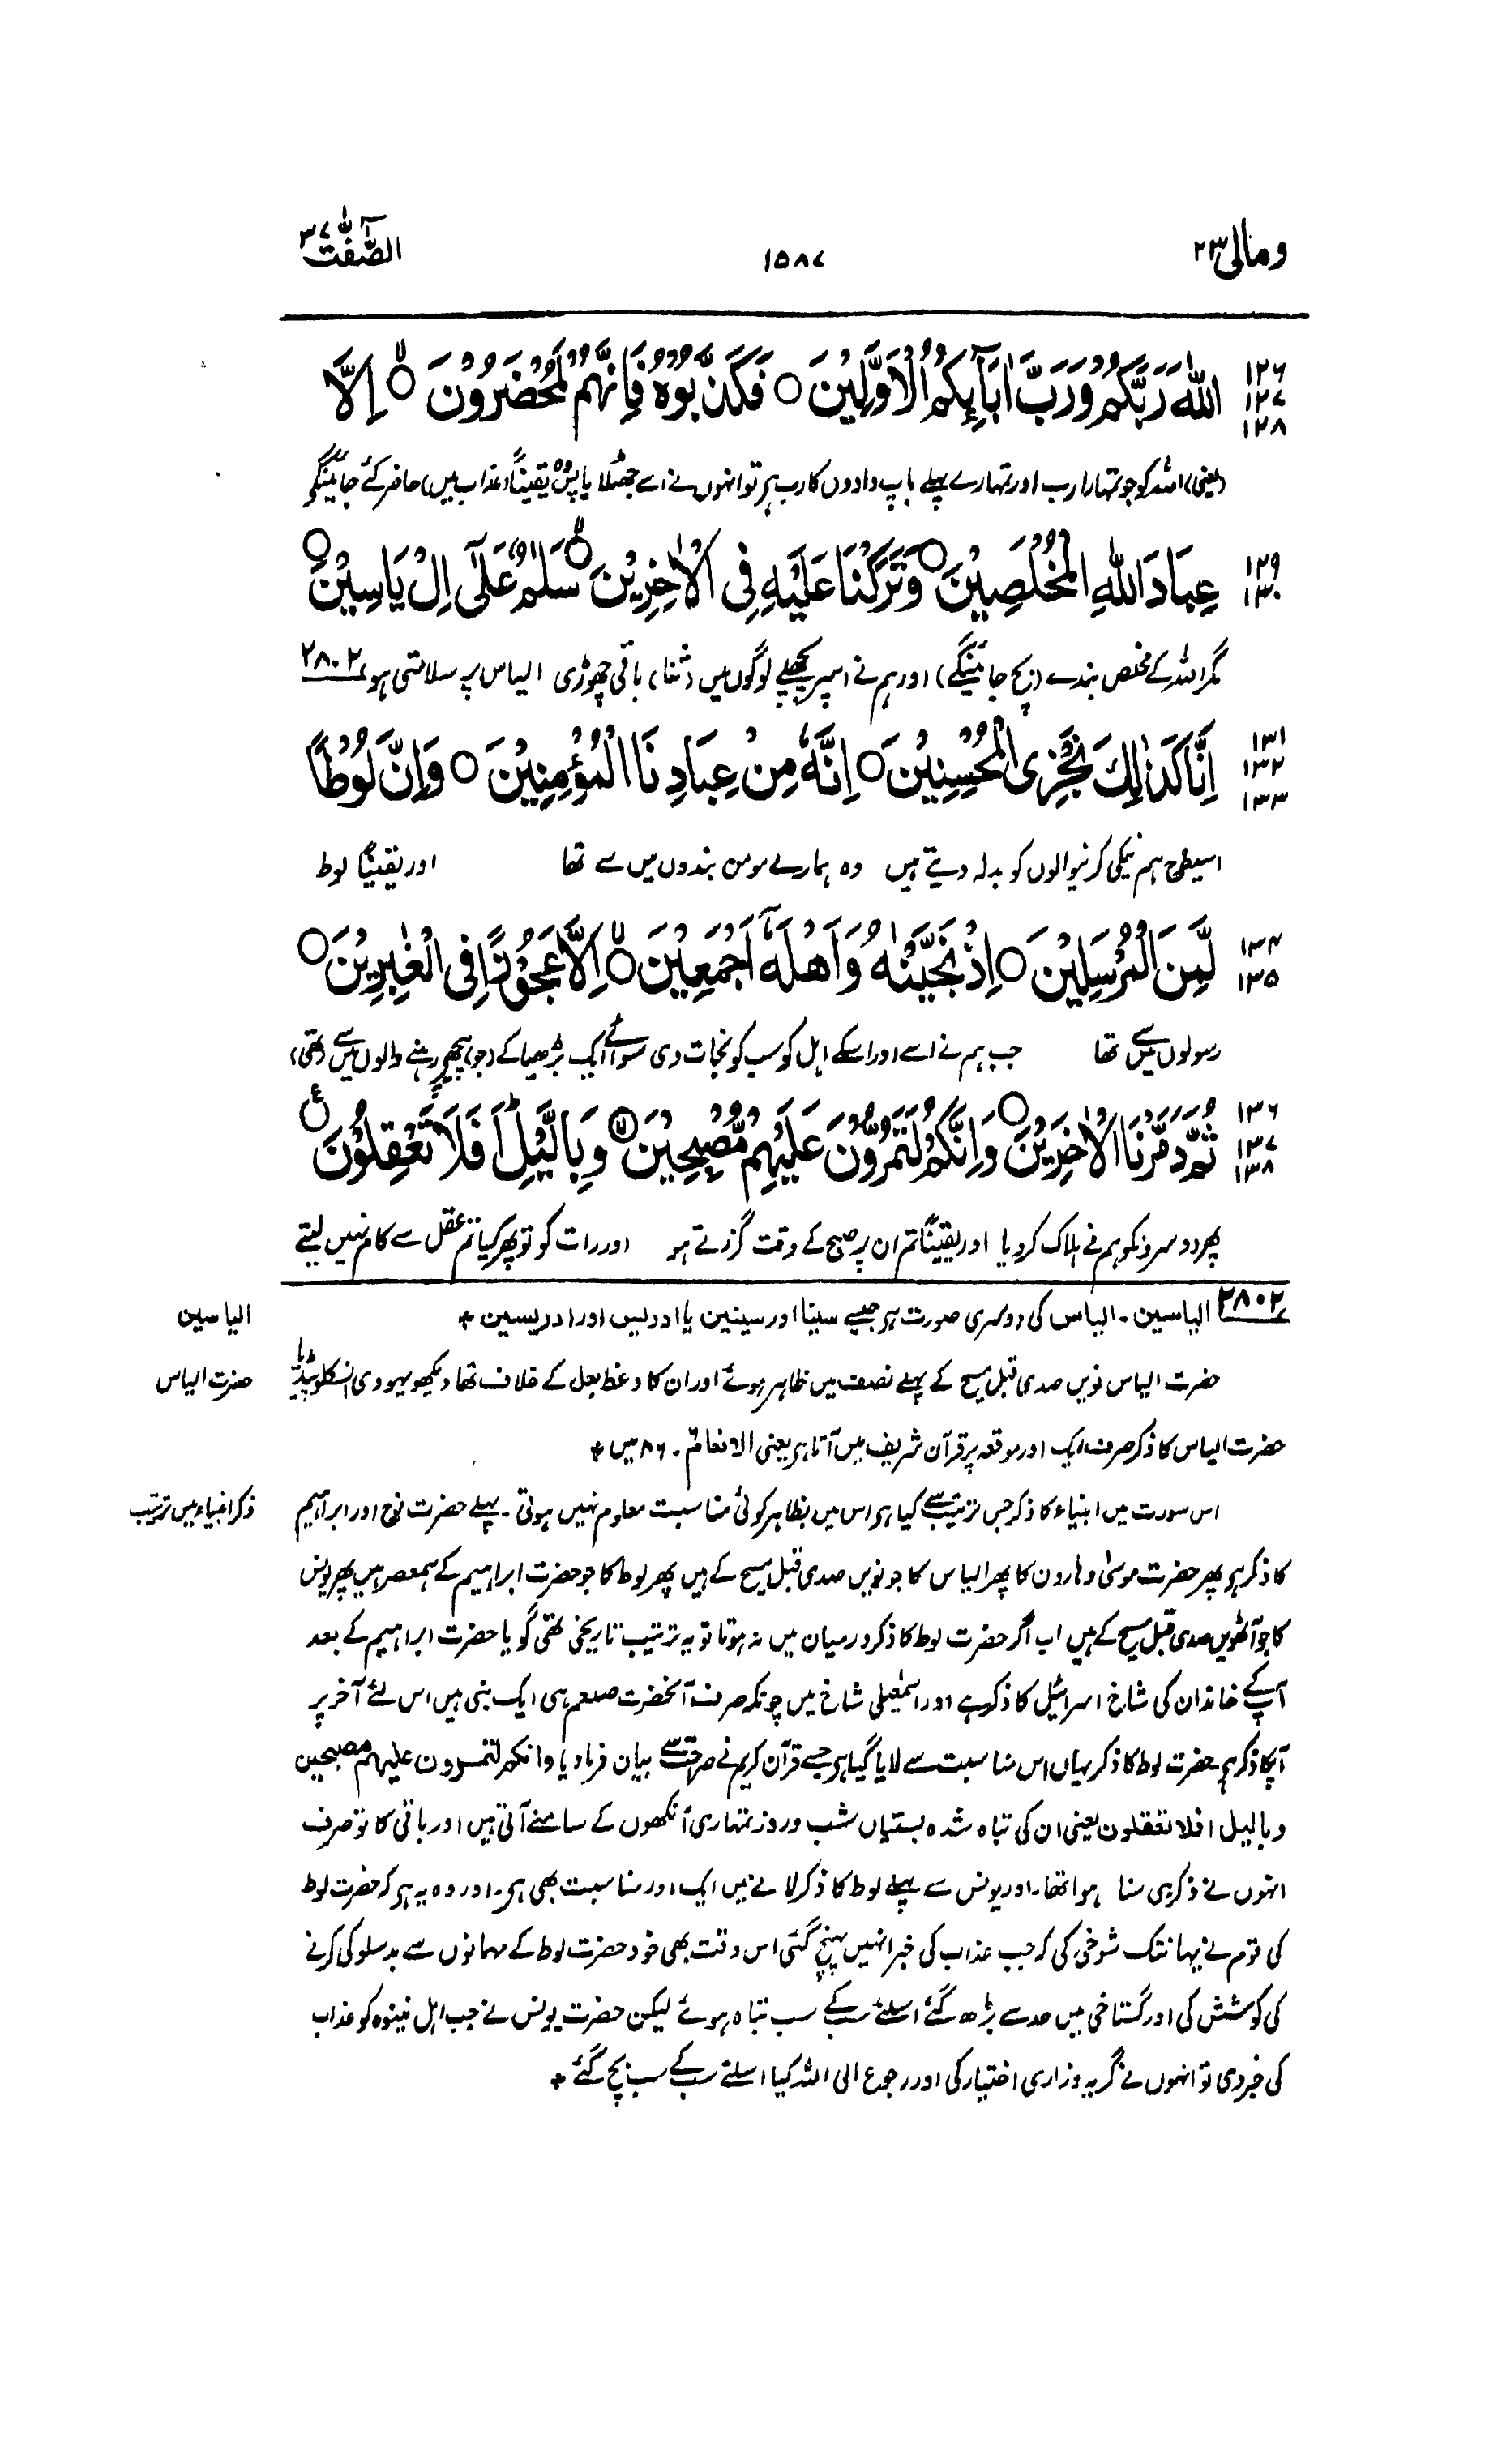 ومالی ۲۳
۱۵۸۷
الصّٰٓفّٰت ۳۷
۱۲۶
۱۲۷
۱۲۸
اللّٰهَ رَبَّكُمْ وَرَبَّ اٰبَآئِكُمُ الْاَوَّلِيْنَ ○ فَكَذَّبُوْهُ فَاِنَّهُمْ لَمُحْضَرُوْنَ ۙ○ اِلَّا
(یعنی) اللہ کو جو تمہارا رب اور تمہارے پہلے باپ دادوں کا رب ہے تو انہوں نے اسے جھٹلایا پس وہ یقیناً (عذاب میں) حاضر کئے جائینگے
۱۲۹
۱۳۰
عِبَادَ اللّٰهِ الْمُخْلَصِيْنَ ○ وَتَرَكْنَا عَلَيْهِ فِى الْاٰخِرِيْنَ ۙ○ سَلٰمٌ عَلٰٓى اِلْ يَاسِيْنَ ○
مگر اللہ کے مخلص بندے (بچ جائینگے) اور ہم نے اسپر پچھلے لوگوں میں (ثنا) باقی چھوڑی الیاس پر سلامتی ہو ۲۸۰۲
۱۳۱
۱۳۲
۱۳۳
اِنَّا كَذٰلِكَ نَجْزِى الْمُحْسِنِيْنَ ○ اِنَّهٗ مِنْ عِبَادِنَا الْمُؤْمِنِيْنَ ○ وَاِنَّ لُوْطًا
اسیطرح ہم نیکی کرنیوالوں کو بدلہ دیتے ہیں وہ ہمارے مومن بندوں میں سے تھا اور یقیناً لوط
۱۳۴
۱۳۵
لَّمِنَ الْمُرْسَلِيْنَ ○ اِذْ نَجَّيْنٰهُ وَاَهْلَهٗٓ اَجْمَعِيْنَ ۙ○ اِلَّا عَجُوْزًا فِى الْغٰبِرِيْنَ ○
رسولوں میں سے تھا جب ہم نے اسے اور اسکے اہل کو سب کو نجات دی سوائے ایک بڑھیا کے (جو) پیچھے رہنے والوں میں سے (تھی)
۱۳۶
۱۳۷
۱۳۸
ثُمَّ دَمَّرْنَا الْاٰخَرِيْنَ ○ وَاِنَّكُمْ لَتَمُرُّوْنَ عَلَيْهِمْ مُّصْبِحِيْنَ ۙ○ وَبِالَّيْلِ ؕ اَفَلَا تَعْقِلُوْنَ ○ ع
پھر دوسروں کو ہم نے ہلاک کر دیا اور یقیناً تم ان پر صبح کے وقت گزرتے ہو اور رات کو تو پھر کیا تم عقل سے کام نہیں لیتے
۲۸۰۲ الیاسین ۔ الیاس کی دوسری صورت ہے جیسے سینا اور سینین یا ادریس اور ادریسین +
الیاسین
حضرت الیاس نویں صدی قبل مسیح کے پہلے نصف میں ظاہر ہوئے اور ان کا وعظ بعل کے خلاف تھا دیکھو یہودی انسکلوپیڈیا
حضرت الیاس
حضرت الیاس کا ذکر صرف ایک اور موقعہ پر قرآن شریف میں آتا ہے یعنی الانعام ۔ ۸۶ میں +
اس سورت میں انبیاء کا ذکر جس ترتیب سے کیا ہے اس میں بظاہر کوئی مناسبت معلوم نہیں ہوتی ۔ پہلے حضرت نوح اور ابراہیم
ذکر انبیاء میں ترتیب
کا ذکر ہے پھر حضرت موسیٰ وہارون کا پھر الیاس کا جو نویں صدی قبل مسیح کے ہیں پھر لوط کا جو حضرت ابراہیم کے ہمعصر ہیں پھر یونس
کا جو آٹھویں صدی قبل مسیح کے ہیں اب اگر حضرت لوط کا ذکر درمیان میں نہ ہوتا تو یہ ترتیب تاریخی تھی گویا حضرت ابراہیم کے بعد
آپکے خاندان کی شاخ اسرائیل کا ذکر ہے اور اسمٰعیلی شاخ میں چونکہ صرف آنحضرت صلعم ہی ایک نبی ہیں اس لئے آخر پر
آپکا ذکر ہے حضرت لوط کا ذکر یہاں اس مناسبت سے لایا گیا ہے جسے قرآن کریم نے صراحت سے بیان فرما دیا وانکم لتمرون علیہم مصبحین
وبالیل افلا تعقلون یعنی ان کی تباہ شدہ بستیاں شب وروز تمہاری آنکھوں کے سامنے آتی ہیں اور باقی کا تو صرف
انہوں نے ذکر ہی سنا ہوا تھا ۔ اور یونس سے پہلے لوط کا ذکر لانے میں ایک اور مناسبت بھی ہے ۔ اور وہ یہ ہے کہ حضرت لوط
کی قوم نے یہانتک شوخی کی کہ جب عذاب کی خبر انہیں پہنچ گئی اس وقت بھی خود حضرت لوط کے مہمانوں سے بدسلوکی کرنے
کی کوشش کی اور گستاخی میں حد سے بڑھ گئے اسلئے سبکے سب تباہ ہوئے لیکن حضرت یونس نے جب اہل نینوہ کو عذاب
کی خبر دی تو انہوں نے گریہ وزاری اختیار کی اور رجوع الی اللہ کیا اسلئے سبکے سب بچ گئے +